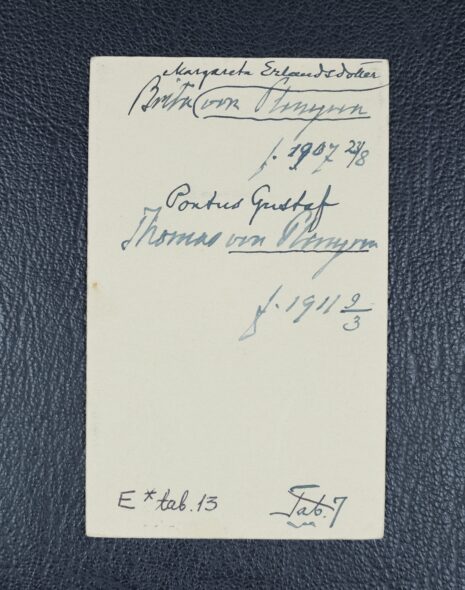 Margareta Erlandsdotter
Brita von Plomgren
f. 1907 24/8
Pontus Gustaf
Thomas von Plomgren
f. 1911 9/3
E* tab. 13
Tab. 7